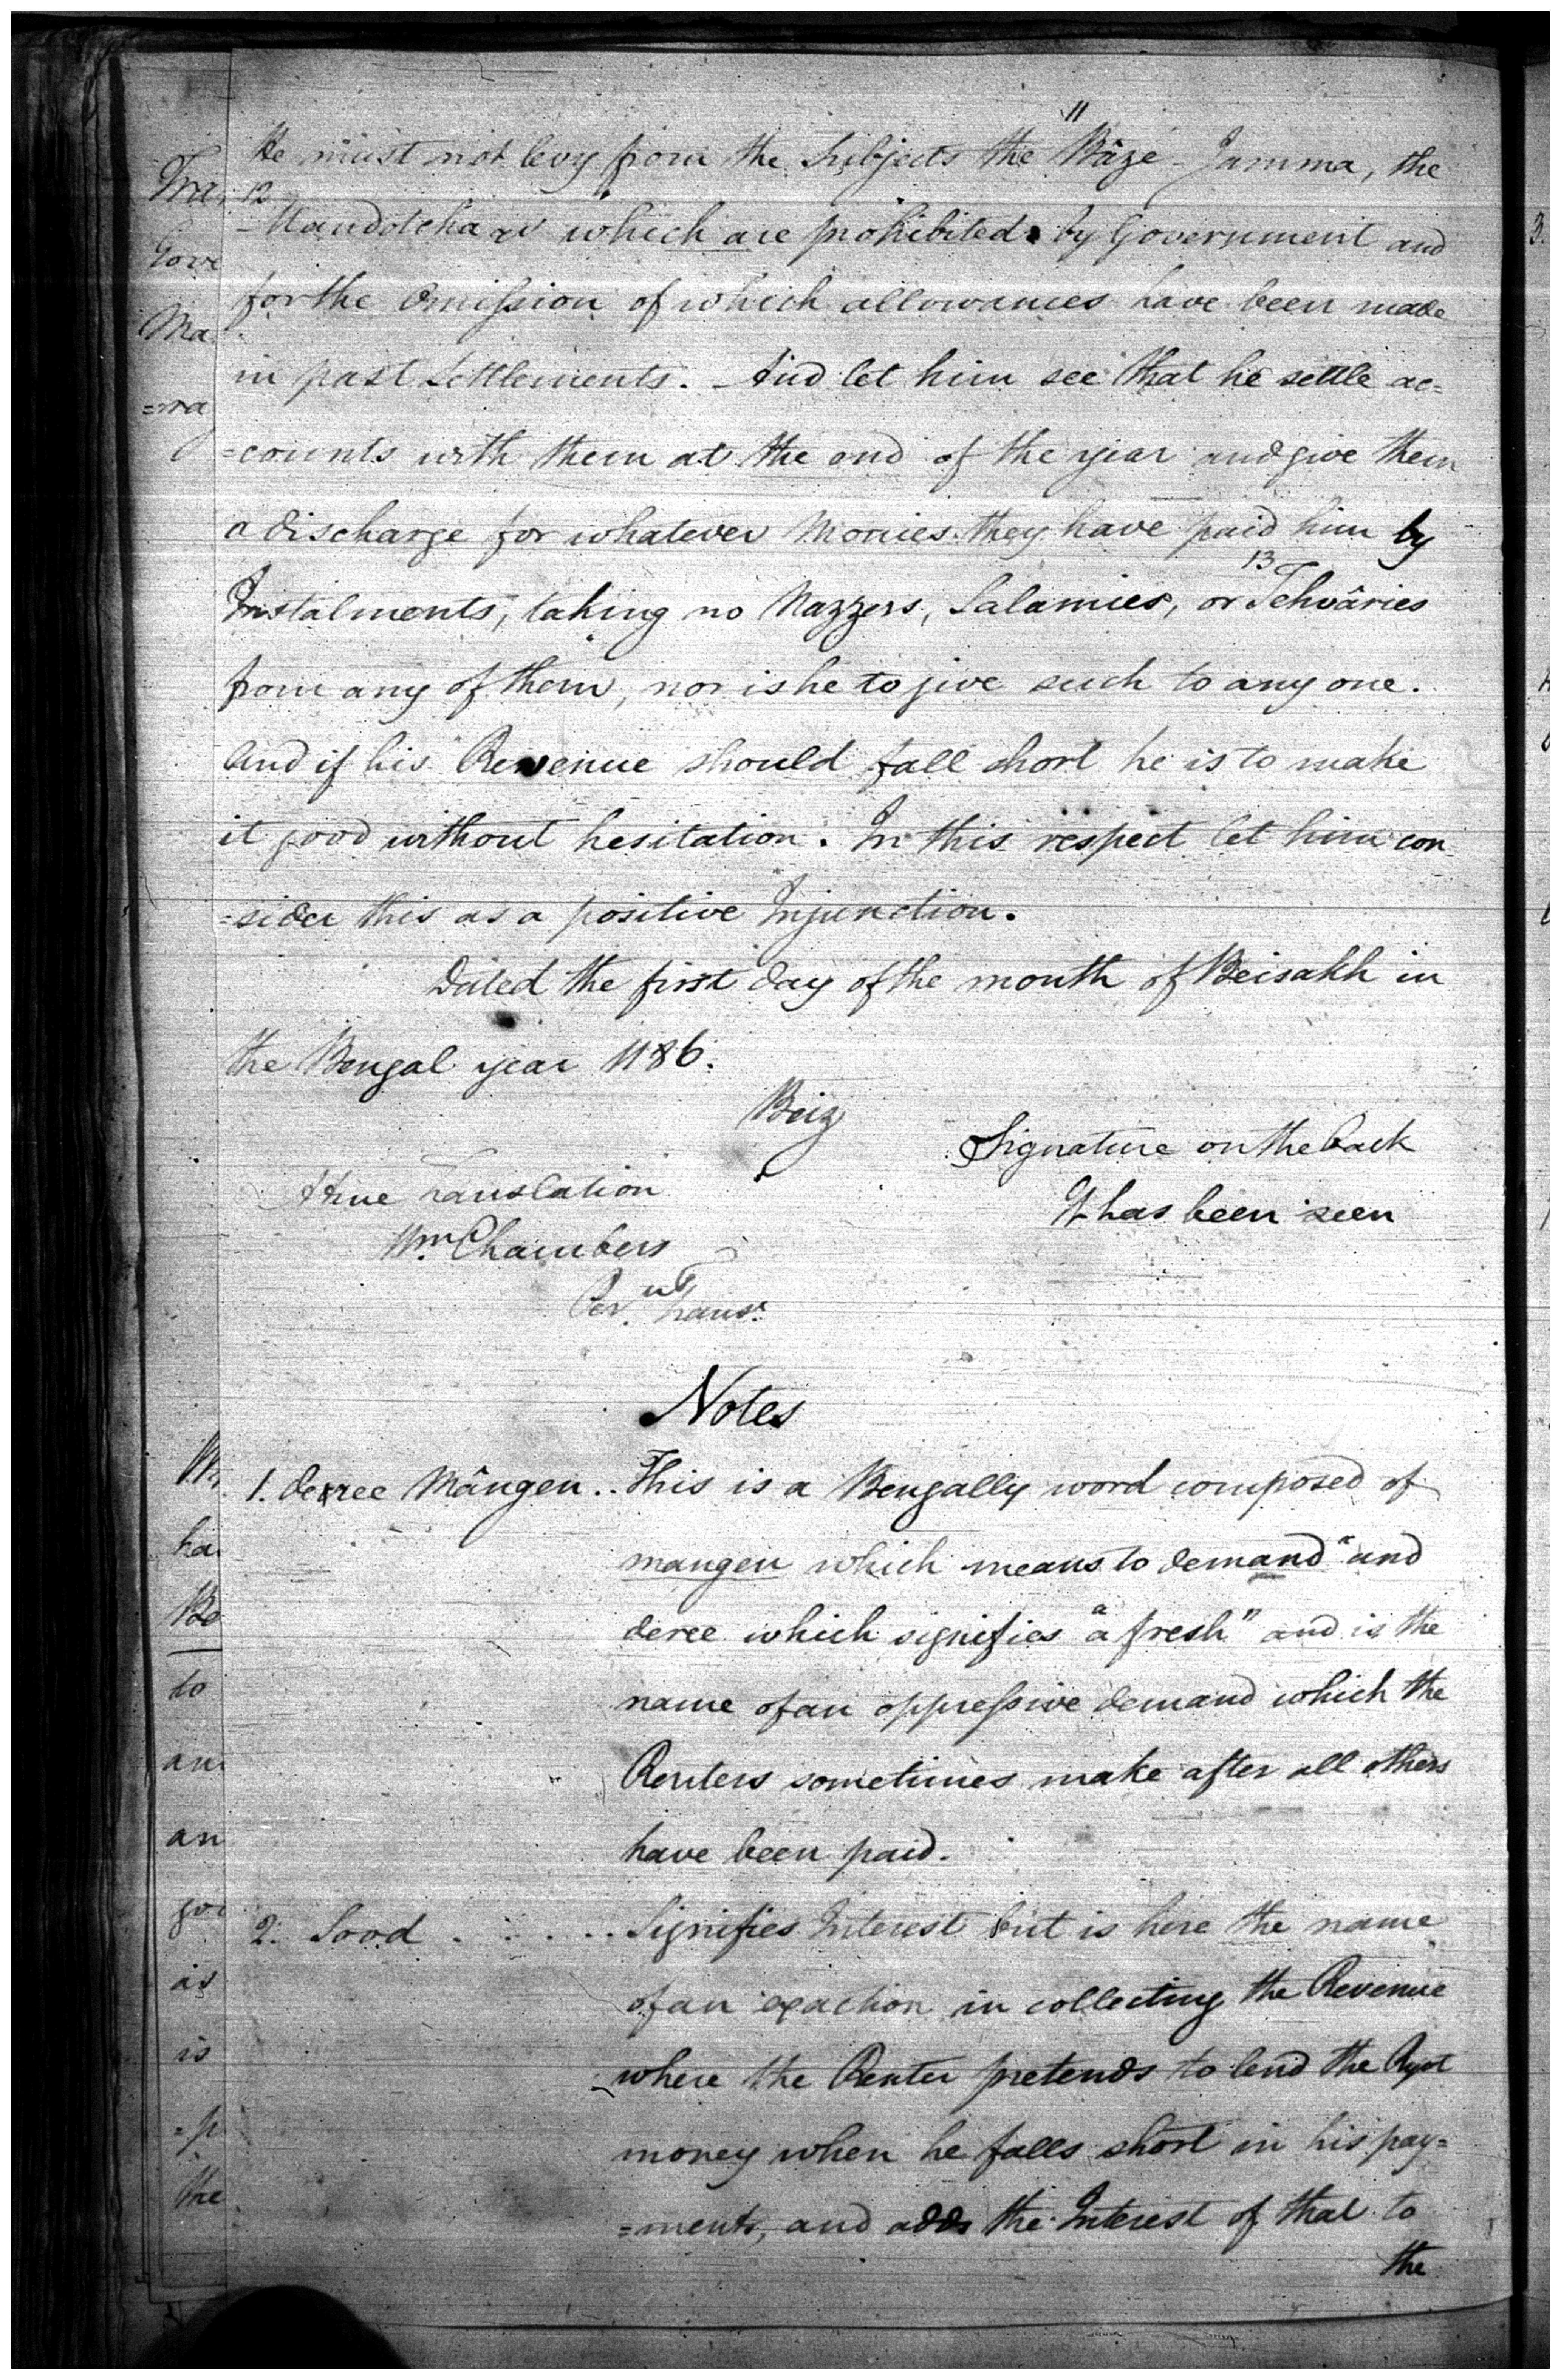 He must not levy from the Subjects the 11 Bâze Jamma, the
12 Haudotchars which are prohibited by Government and
for the Omission of which allowances have been made
in past Settlements. And let him see that he settle ac=
=counts with them at the end of the year and give them
a discharge for whatever Monies they have paid him by
Instalments, taking no Nazzers, Salamies, or 13 Tehvâries
from any of them, nor is he to give such to any one.
And if his Revenue should fall short he is to make
it good without hesitation. In this respect let him con
=sider this as a positive Injunction.
Dated the first day of the month of Beisakh in
the Bengal year 1186.
Beiz
Signature on the back
A true Translation
It has been seen
Wm. Chambers
Notes
1. deree Mângen.. This is a Bengally word composed of
mangen which means to demand" and
deree which signifies "a fresh" and is the
name of an oppressive demand which the
Renters sometimes make after all others
have been paid.
2. Sood . . . . . Signifies Interest but is here the name
of an exaction in collecting the Revenue
where the Renter pretends to lend the Ryot
money when he falls short in his pay=
=ments, and adds the Interest of that to
the
Tra
Gove
Ma
=ma
ha
Be
to
an
an
as
is
=p
the
3.